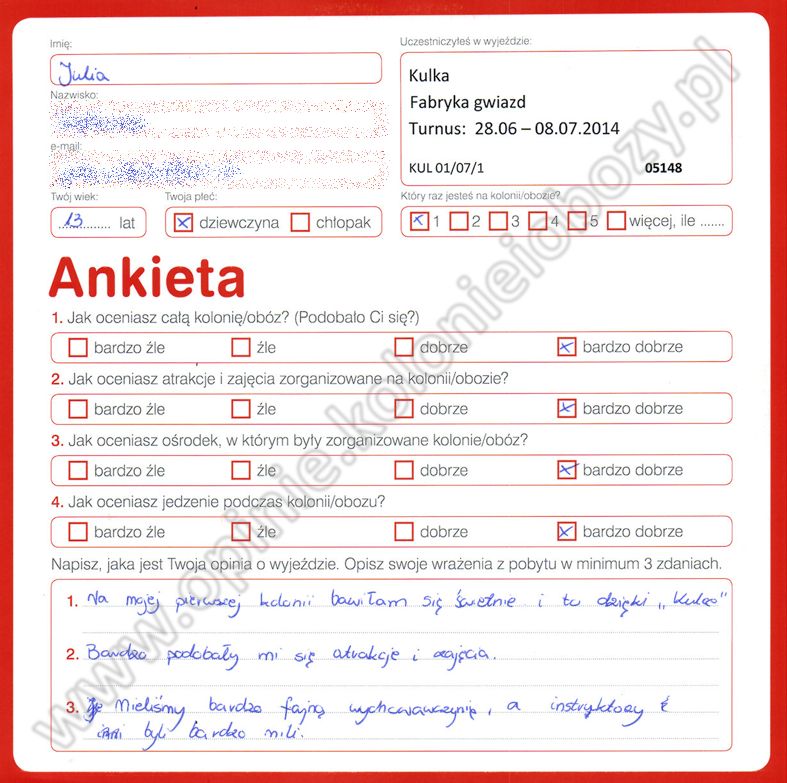 Imię:
Julia
Uczestniczyłeś w wyjeździe:
Kulka
Fabryka gwiazd
Turnus: 28.06 – 08.07.2014
KUL 01/07/1 05148
Nazwisko:
e-mail:
Twój wiek:
13 lat
Twoja płeć:
dziewczyna chłopak
Który raz jesteś na kolonii/obozie?
1 2 3 4 5 więcej, ile .......
Ankieta
1. Jak oceniasz całą kolonię/obóz? (Podobało Ci się?)
bardzo źle źle dobrze bardzo dobrze
2. Jak oceniasz atrakcje i zajęcia zorganizowane na kolonii/obozie?
bardzo źle źle dobrze bardzo dobrze
3. Jak oceniasz ośrodek, w którym były zorganizowane kolonie/obóz?
bardzo źle źle dobrze bardzo dobrze
4. Jak oceniasz jedzenie podczas kolonii/obozu?
bardzo źle źle dobrze bardzo dobrze
Napisz, jaka jest Twoja opinia o wyjeździe. Opisz swoje wrażenia z pobytu w minimum 3 zdaniach.
1. Na mojej pierwszej kolonii bawiłam się świetnie i to dzięki „Kulce"
2. Bardzo podobały mi się atrakcje i zajęcia.
3. Mieliśmy bardzo fajną wychowawczynię, a instruktorzy
byli bardzo mili.
www.opinie.kolonieiobozy.pl